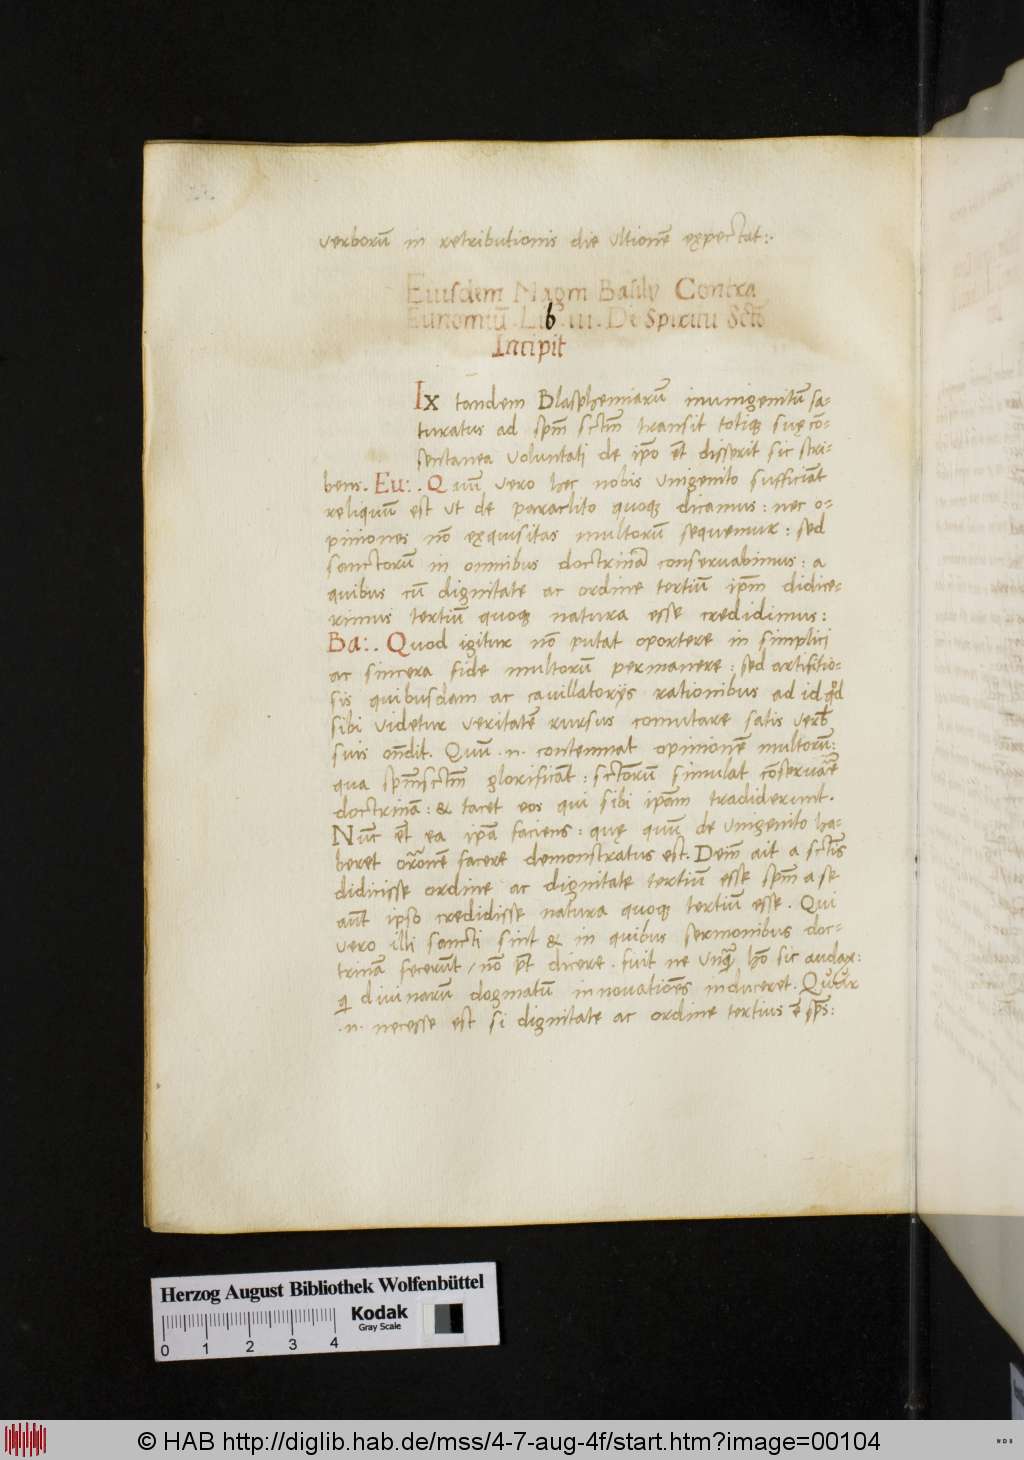 verborū in retributionis die ultionē expectat:·
Eiusdem Magni Basilij Contra
Eunomiū. Lib. iii. De Spiritu Sctō
Incipit
Ix tandem Blasphemiarū inunigenitū sa-
turatus ad spm̄ sctm̄ transit totiqꝫ suę cō-
sentanea voluntati de ipō et̄ disserit sic scri-
bens. Eu:. Quū vero hec nobis unigenito sufficiāt
reliquū est ut de paraclito quoqꝫ dicamus: nec o-
piniones nō exquisitas multorū sequemur: sed
sanctorū in omnibus doctrinā conservabimus: a
quibus cū dignitate ac ordine tertiū ipm̄ didice-
rimus tertiū quoqꝫ natura esse credidimus:
Ba:. Quod igitur nō putat oportere in simplici
ac sincera fide multorū permanere: sed artifitio-
sis quibusdam ac cavillatorijs rationibus ad id qd̄
sibi videtur veritatē rursus comutare satis verb̄
suis ondit̄. Quū .n. contemnat opinionē multorū:
qua spm̄sctm̄ glorificāt: sctorū̄ simulat cōservare
doctrinā: & tacet eos qui sibi ipām tradiderunt.
Nūc et̄ ea ipā faciens: quę quū de unigenito ha-
beret orōnē facere demonstratus est. Dem̄ ait a sctīs
didicisse ordine ac dignitate tertiū esse spm̄ a se
aūt ipso credidisse natura quoqꝫ tertiū esse. Qui
vero illi sancti sint & in quibus sermonibus doc-
trinā fecerūt / nō pt̄ dicere. fuit ne unq̄ hō sic audax:
qi divinarū dogmatū innovatiōes induceret. Quar
.n. necesse est si dignitate ac ordine tertius ē sps̄:
Herzog August Bibliothek Wolfenbüttel
Kodak
Gray Scale
0 1 2 3 4
© HAB http://diglib.hab.de/mss/4-7-aug-4f/start.htm?image=00104
WDB